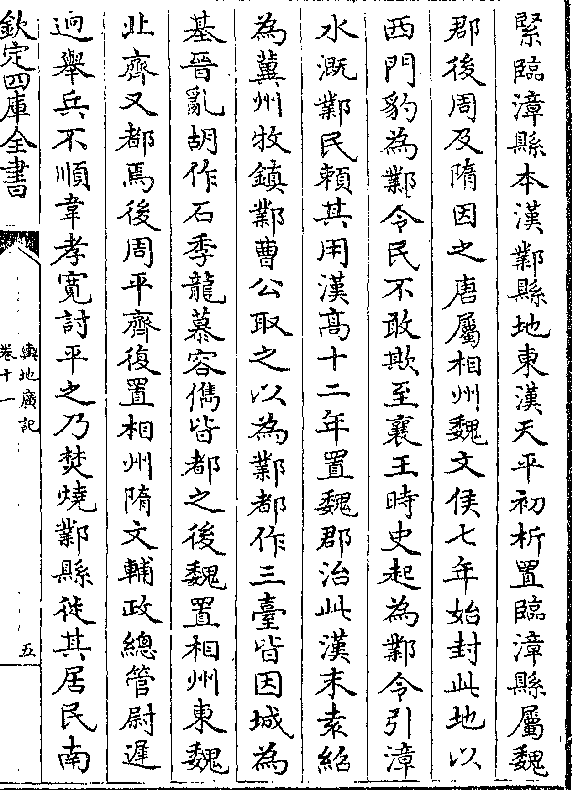 緊臨漳縣本漢鄴縣地東漢天平初析置臨漳縣屬魏
郡後周及隋因之唐屬相州魏文侯七年始封此地以
西門豹為鄴令民不敢欺至襄王時史起為鄴令引漳
水溉鄴民頼其用漢髙十二年置魏郡治此漢末袁紹
為冀州牧鎮鄴曹公取之以為鄴都作三臺皆因城為
基晉亂胡作石季龍慕容儁皆都之後魏置相州東魏
北齊又都焉後周平齊復置相州隋文輔政總管尉遲
迥舉兵不順韋孝寛討平之乃焚燒鄴縣徙其居民南
欽定四庫全書
輿地廣記
卷十一
五